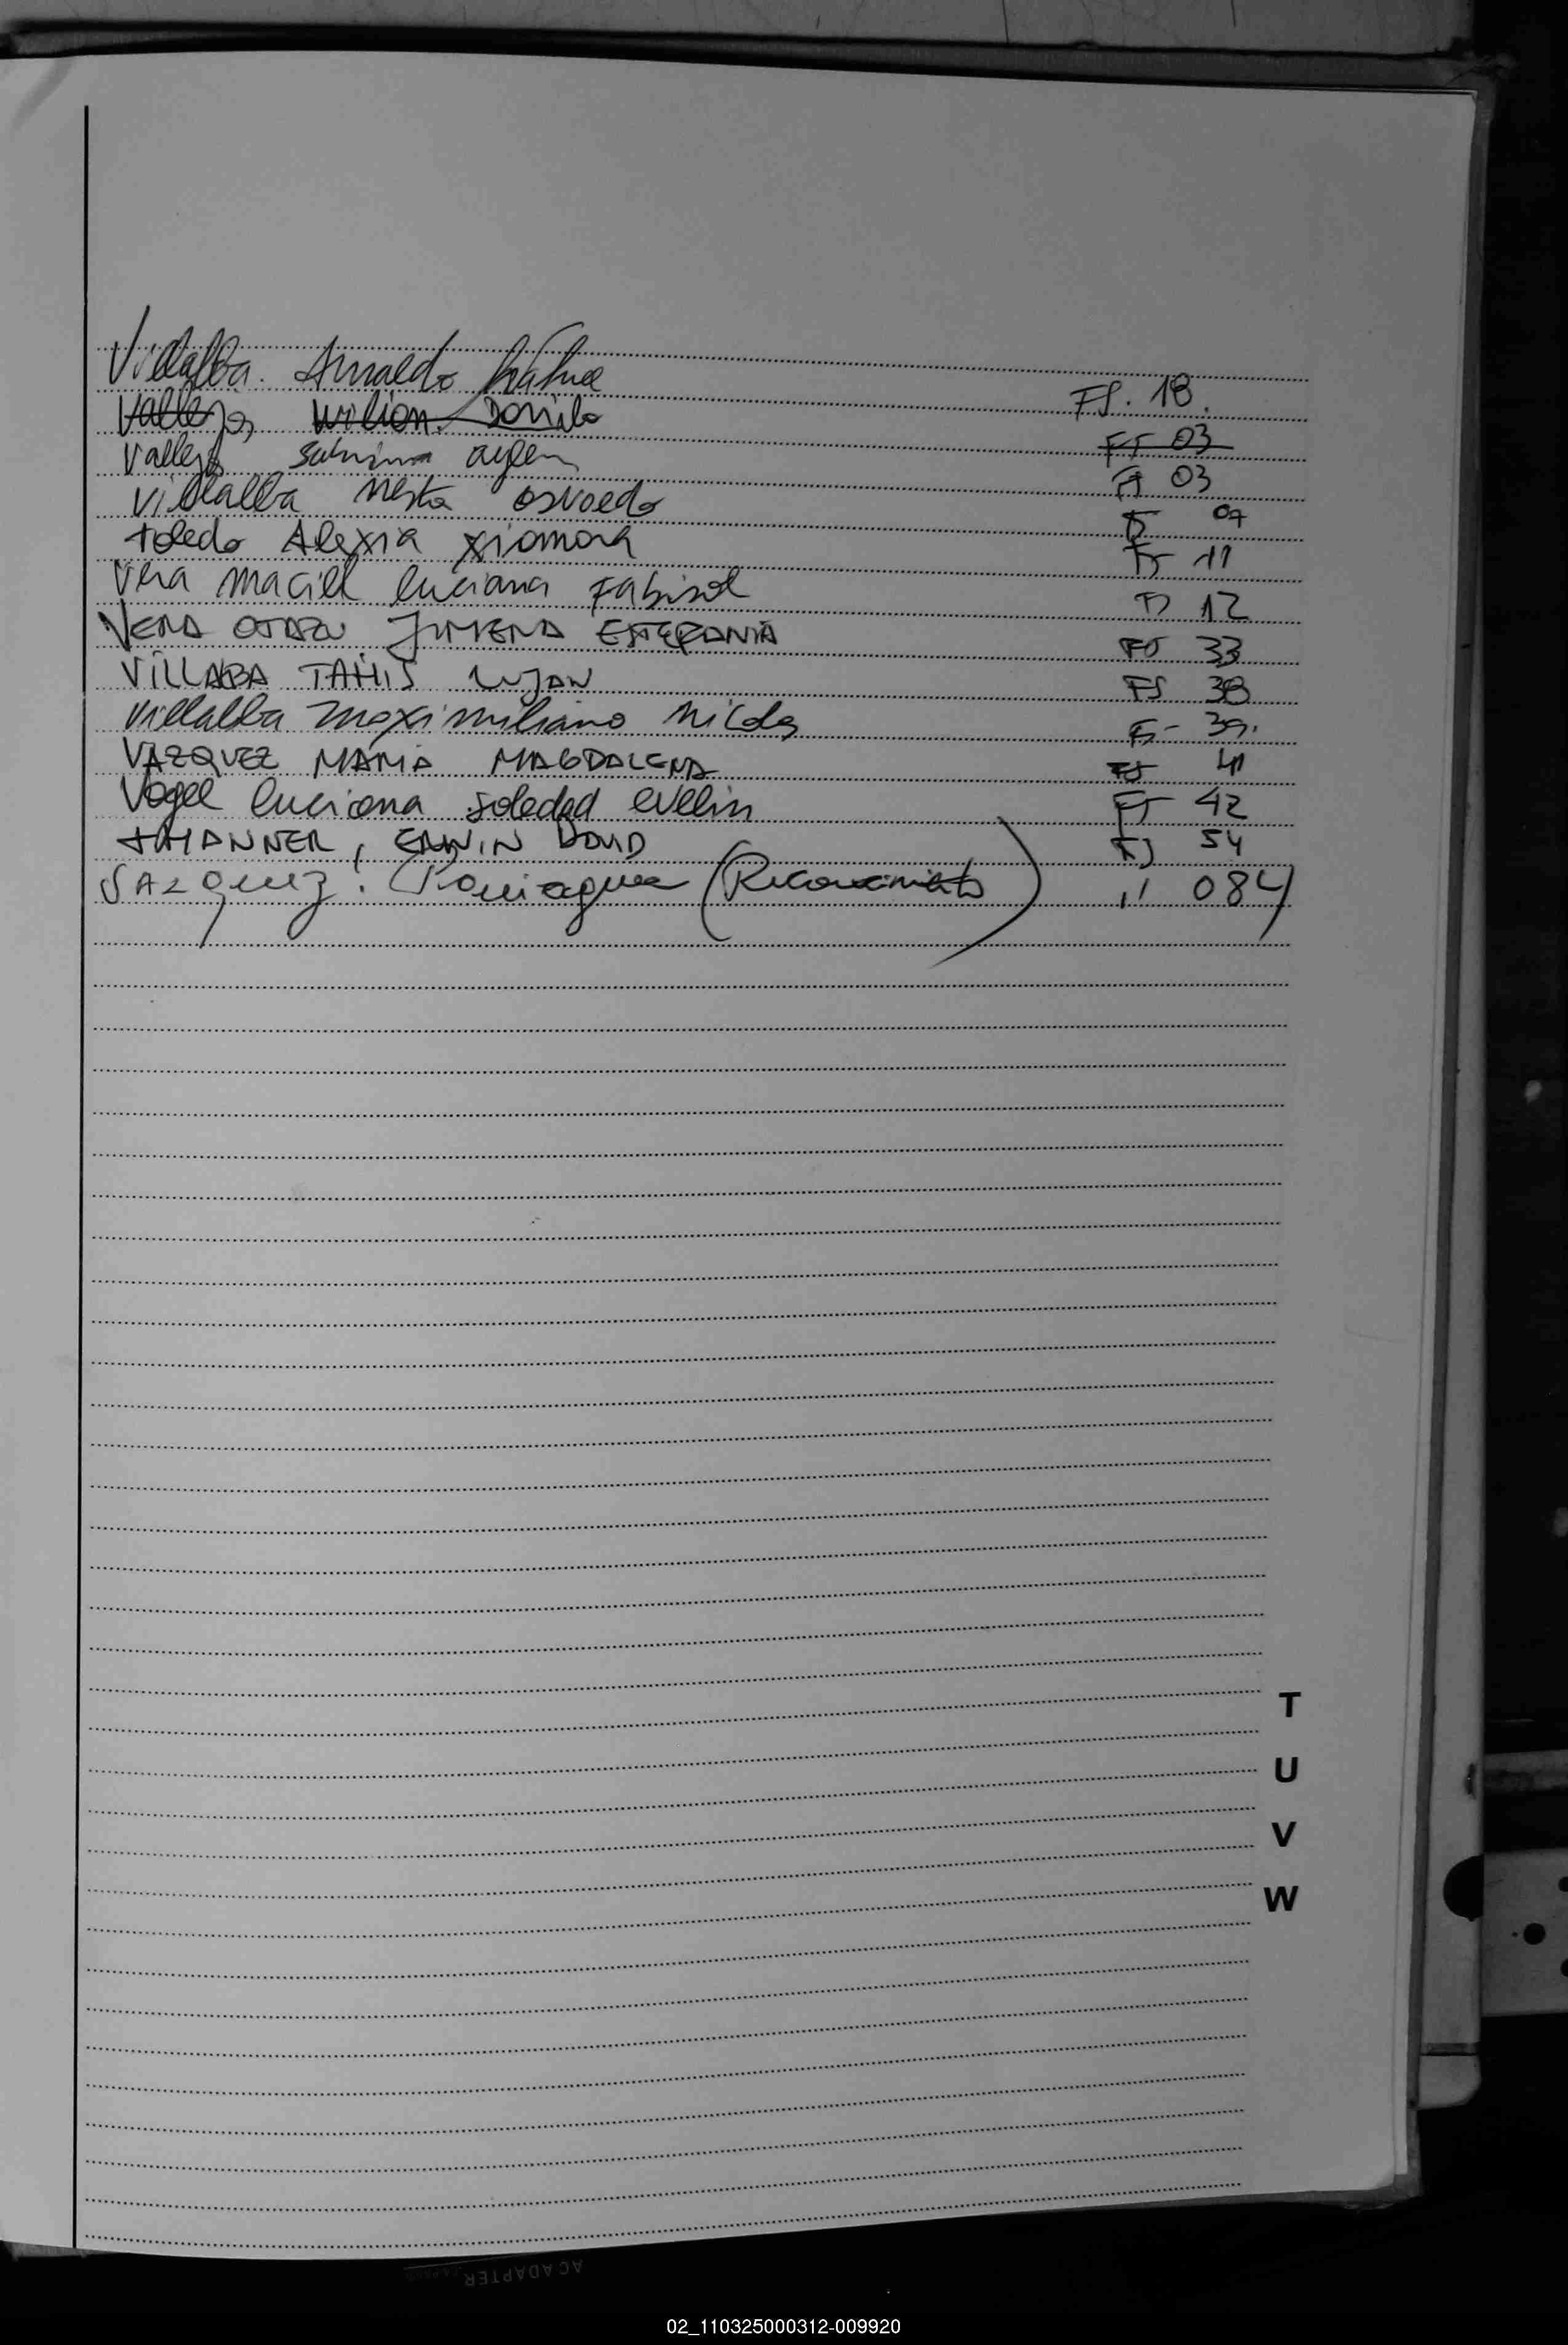 Villalba. Arnaldo FS. 18.
Vallejo, Wilian Danilo FS 03
Vallejo Sabrina aylen FS 03
Villalba Nestor osvaldo FS 07
toledo Alexia xiomara FS 11
Vera maciel luciana Fabisol FS 12
VERA OTAZU JIMENA ESTEFANIA FS 33
VILLABA TAHIS LUJAN FS 38
Villalba maximiliano Nicolas FS- 39.
VAZQUEZ MARIA MAGDALENA FS 41
Vogel luciana soledad evelin FS 42
THANNER, ERWIN DAVID FS 54
VAZquez. Paniagua (Reconocimiento) " 084
T
U
V
W
AC ADAPTER
02_110325000312-009920